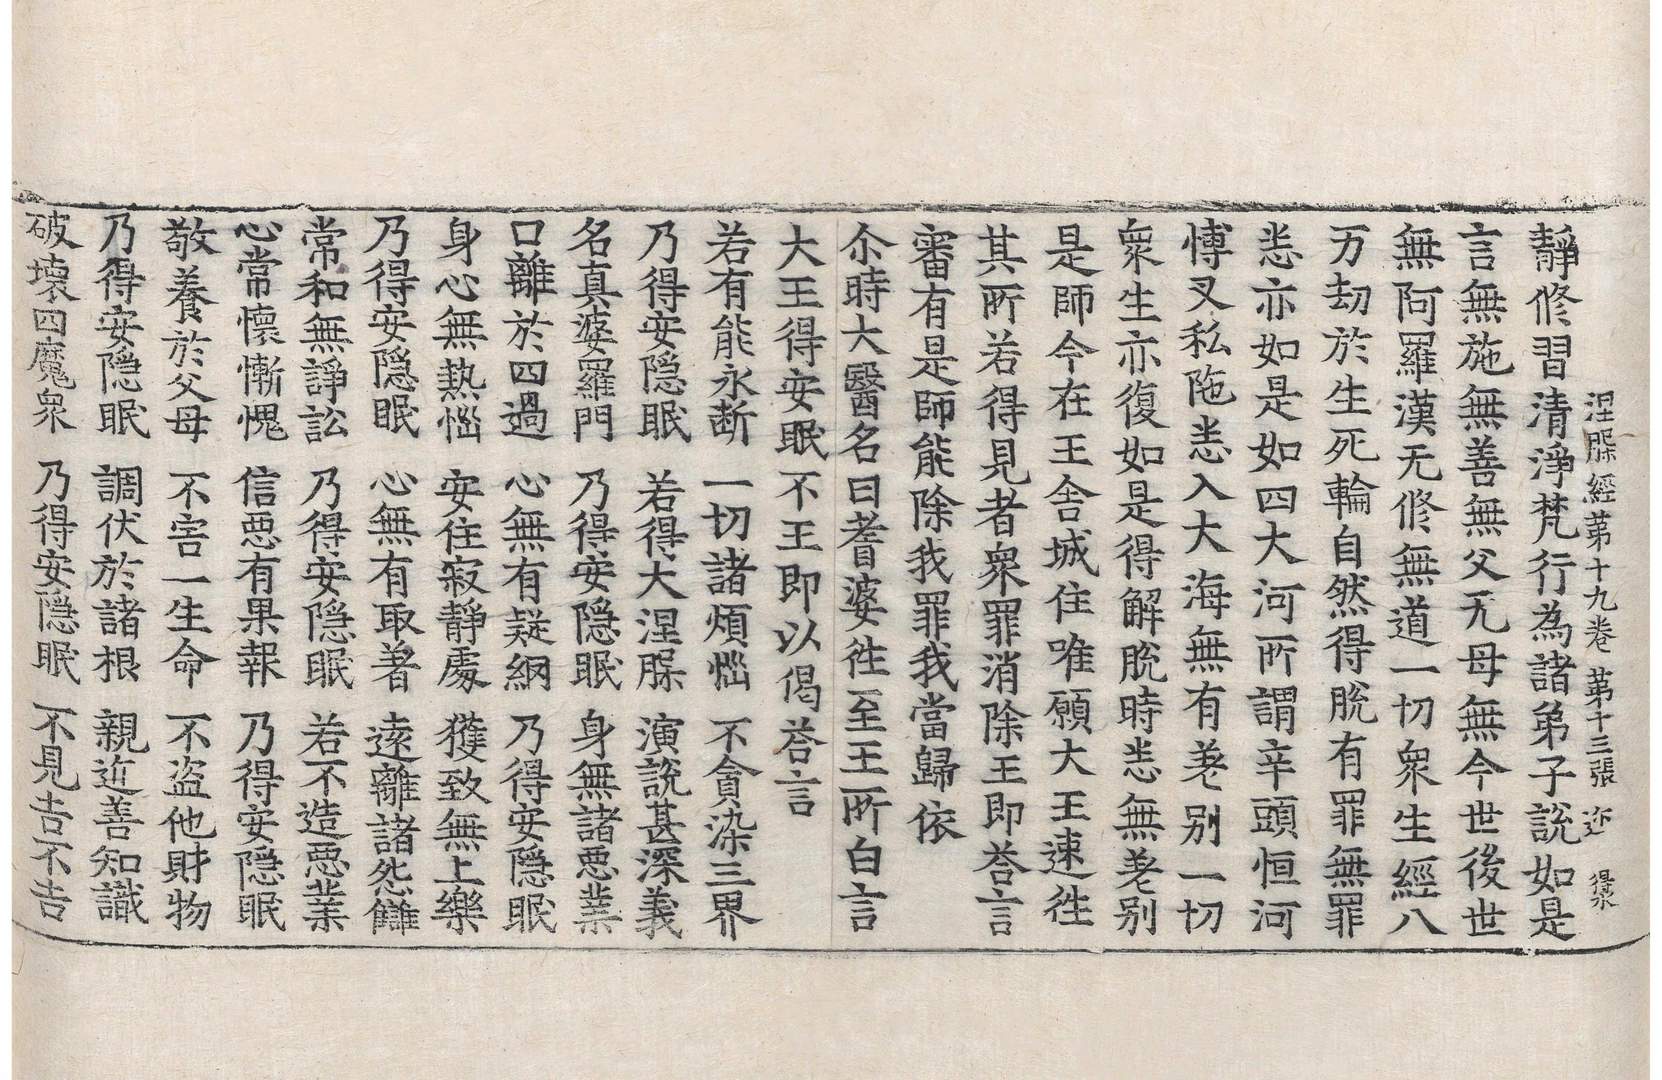 涅槃經第十九卷 第十三張 迩 得泉
靜修習清淨梵行為諸弟子說如是
言無施無善無父无母無今世後世
無阿羅漢无修無道一切衆生經八
万劫於生死輪自然得脫有罪無罪
悉亦如是如四大河所謂辛頭恒河
博叉私陁悉入大海無有差別一切
衆生亦復如是得解脫時悉無差別
是師今在王舍城住唯願大王速徃
其所若得見者衆罪消除王即荅言
審有是師能除我罪我當歸依
尒時大醫名曰耆婆徃至王所白言
大王得安眠不王即以偈荅言
若有能永断 一切諸煩惱 不貪染三界
乃得安隐眠 若得大涅槃 演說甚深義
名真婆羅門 乃得安隐眠 身無諸惡業
口離於四過 心無有疑網 乃得安隐眠
身心無熱惱 安住寂靜處 獲致無上樂
乃得安隐眠 心無有取著 遠離諸怨讎
常和無諍訟 乃得安隐眠 若不造惡業
心常懷慚愧 信惡有果報 乃得安隐眠
敬養於父母 不害一生命 不盗他財物
乃得安隐眠 調伏於諸根 親近善知識
破壞四魔衆 乃得安隐眠 不見吉不吉